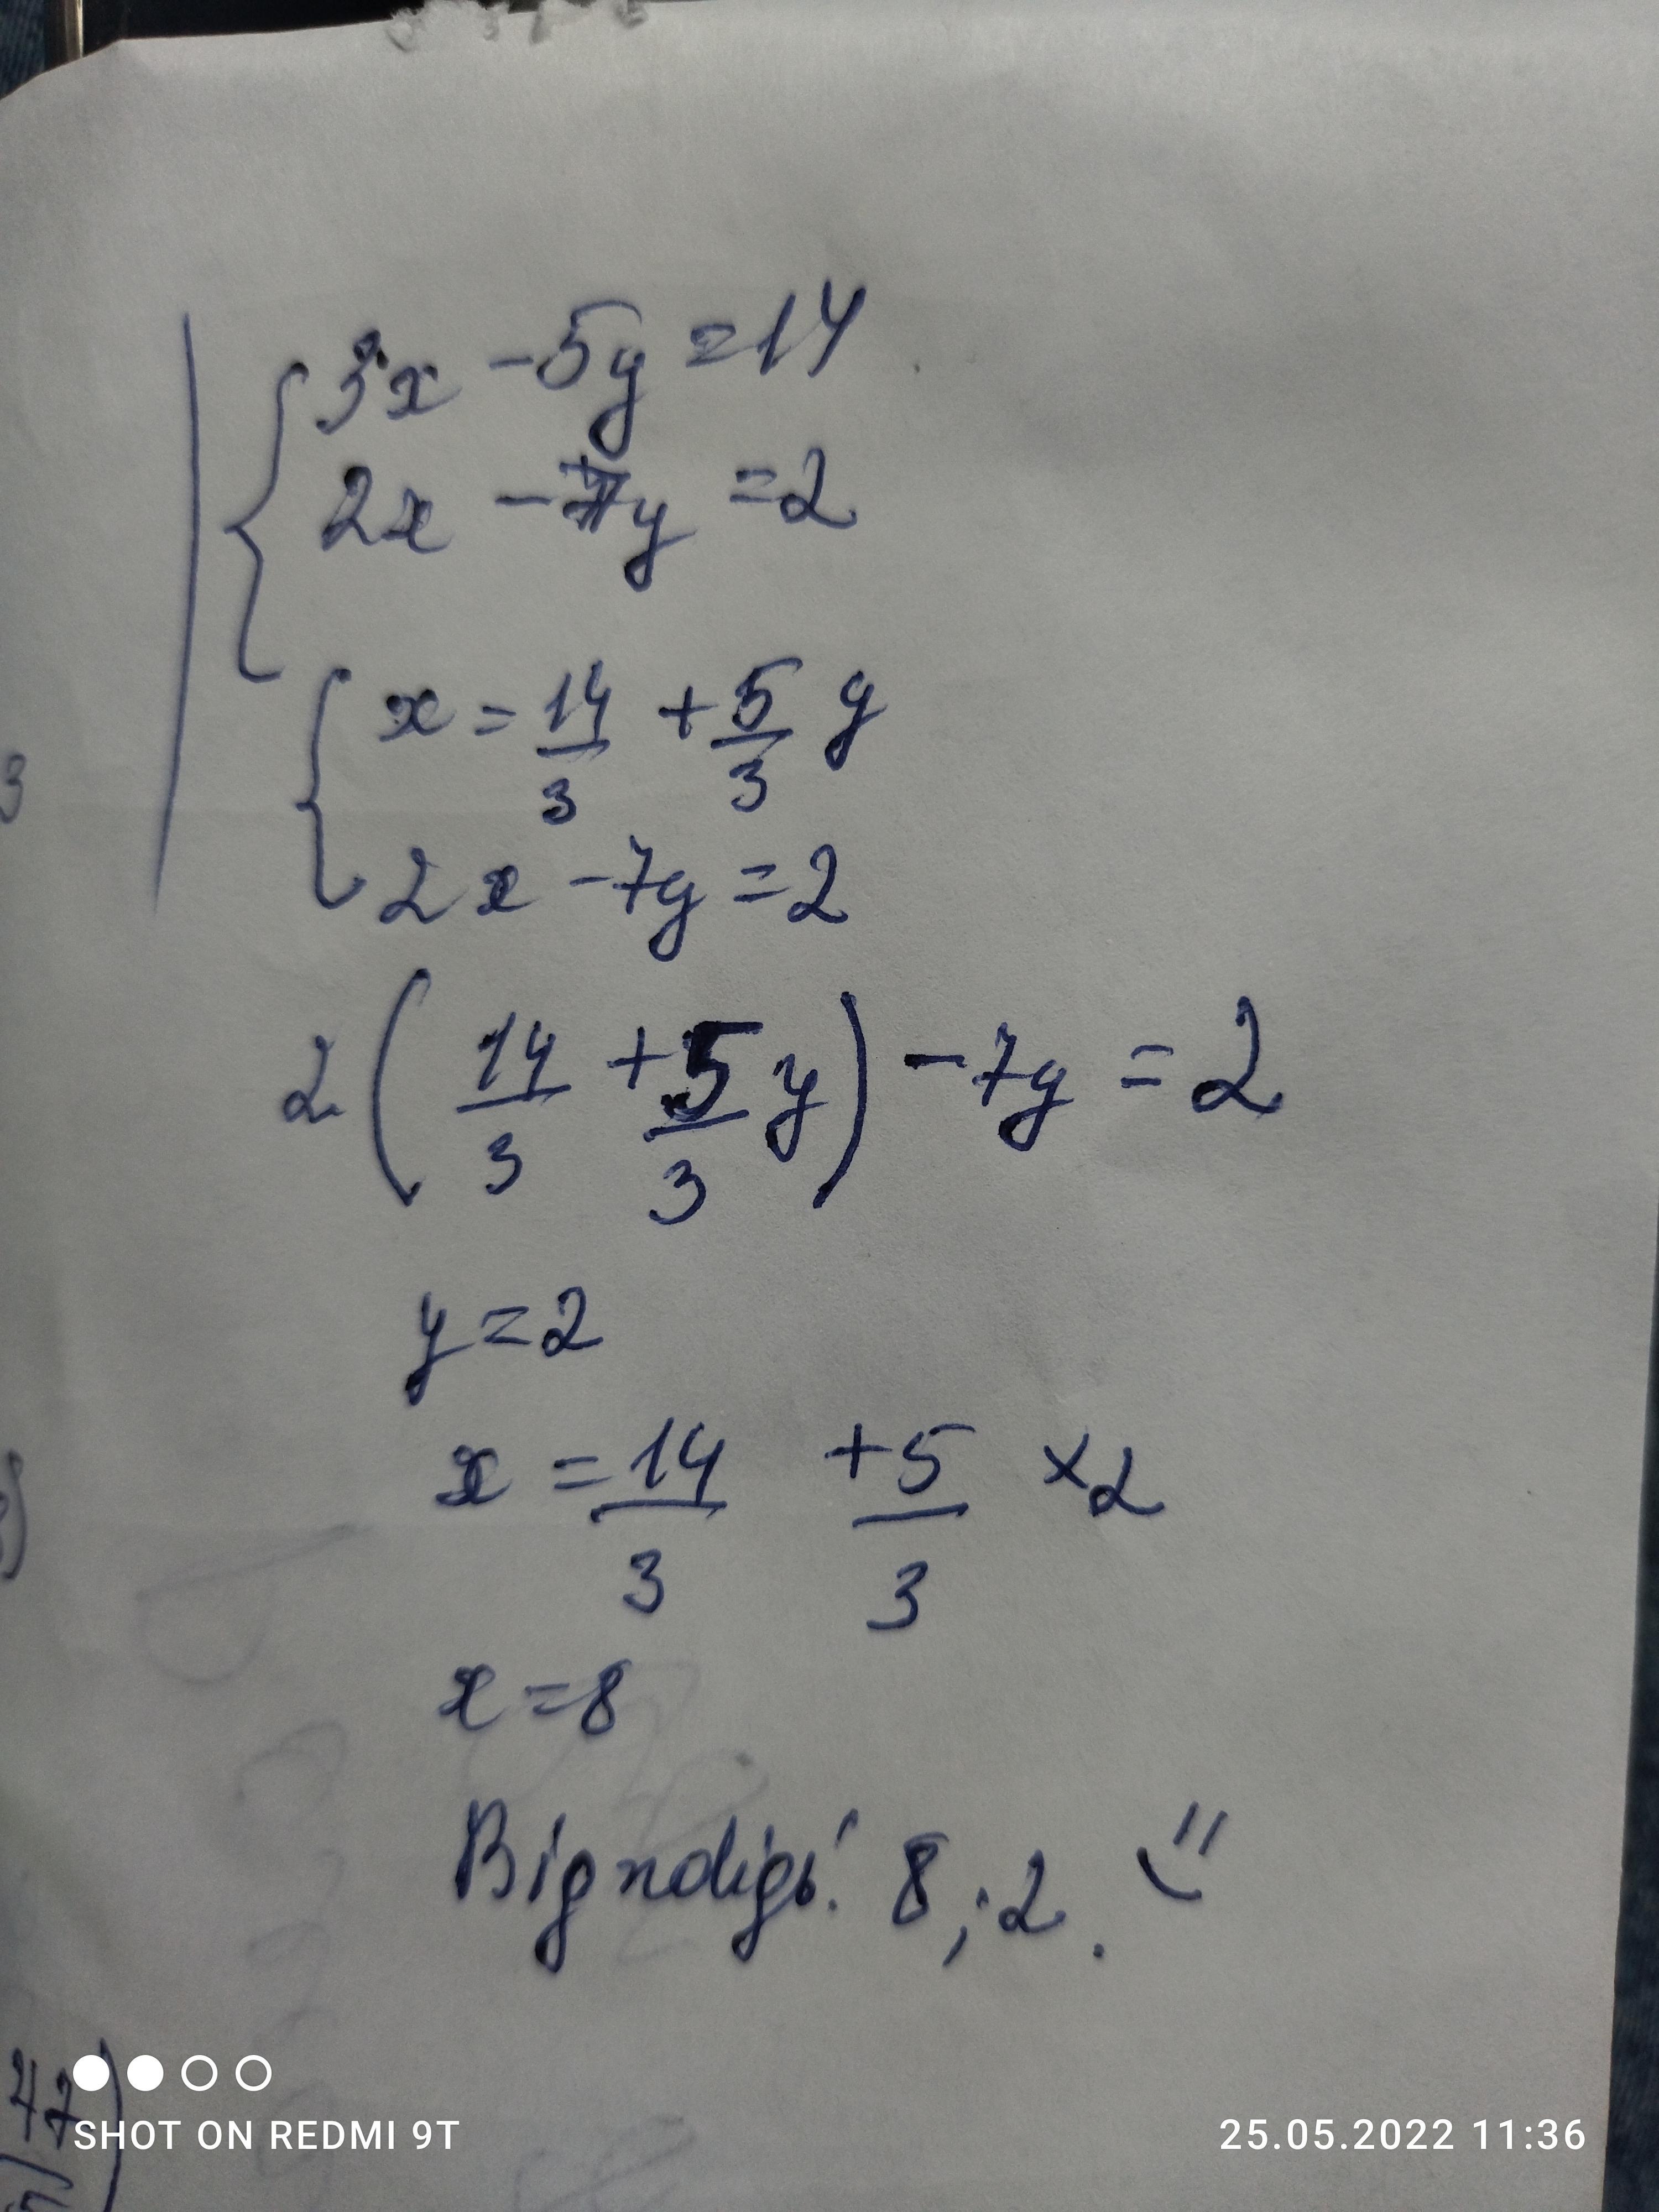 3x - 5y = 14
2x - 7y = 2
x = 14/3 + 5/3 y
2x - 7y = 2
2 ( 14/3 + 5/3 y ) - 7y = 2
y = 2
x = 14/3 + 5/3 × 2
x = 8
8 ; 2 .
3
47
SHOT ON REDMI 9T
25.05.2022 11:36